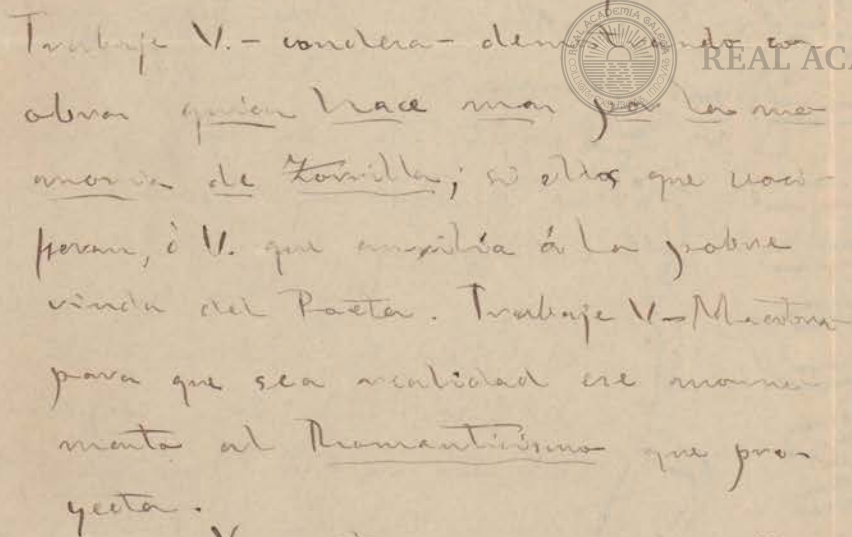 Trabaje V. - condesa - demostrando con
obras quien hace mas por la me-
moria de Zorrilla; si ellos que voci-
feran, ó V. que auxilia á la pobre
viuda del Poeta. Trabaje V. - Maestra
para que sea realidad ese monu-
mento al Romanticismo que pro-
yecta.
REAL ACADEMIA GALEGA
REAL ACA